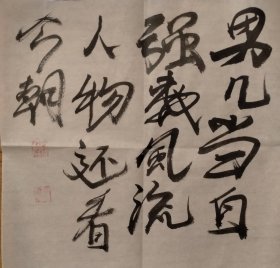 男儿当自
强数风流
人物还看
今朝